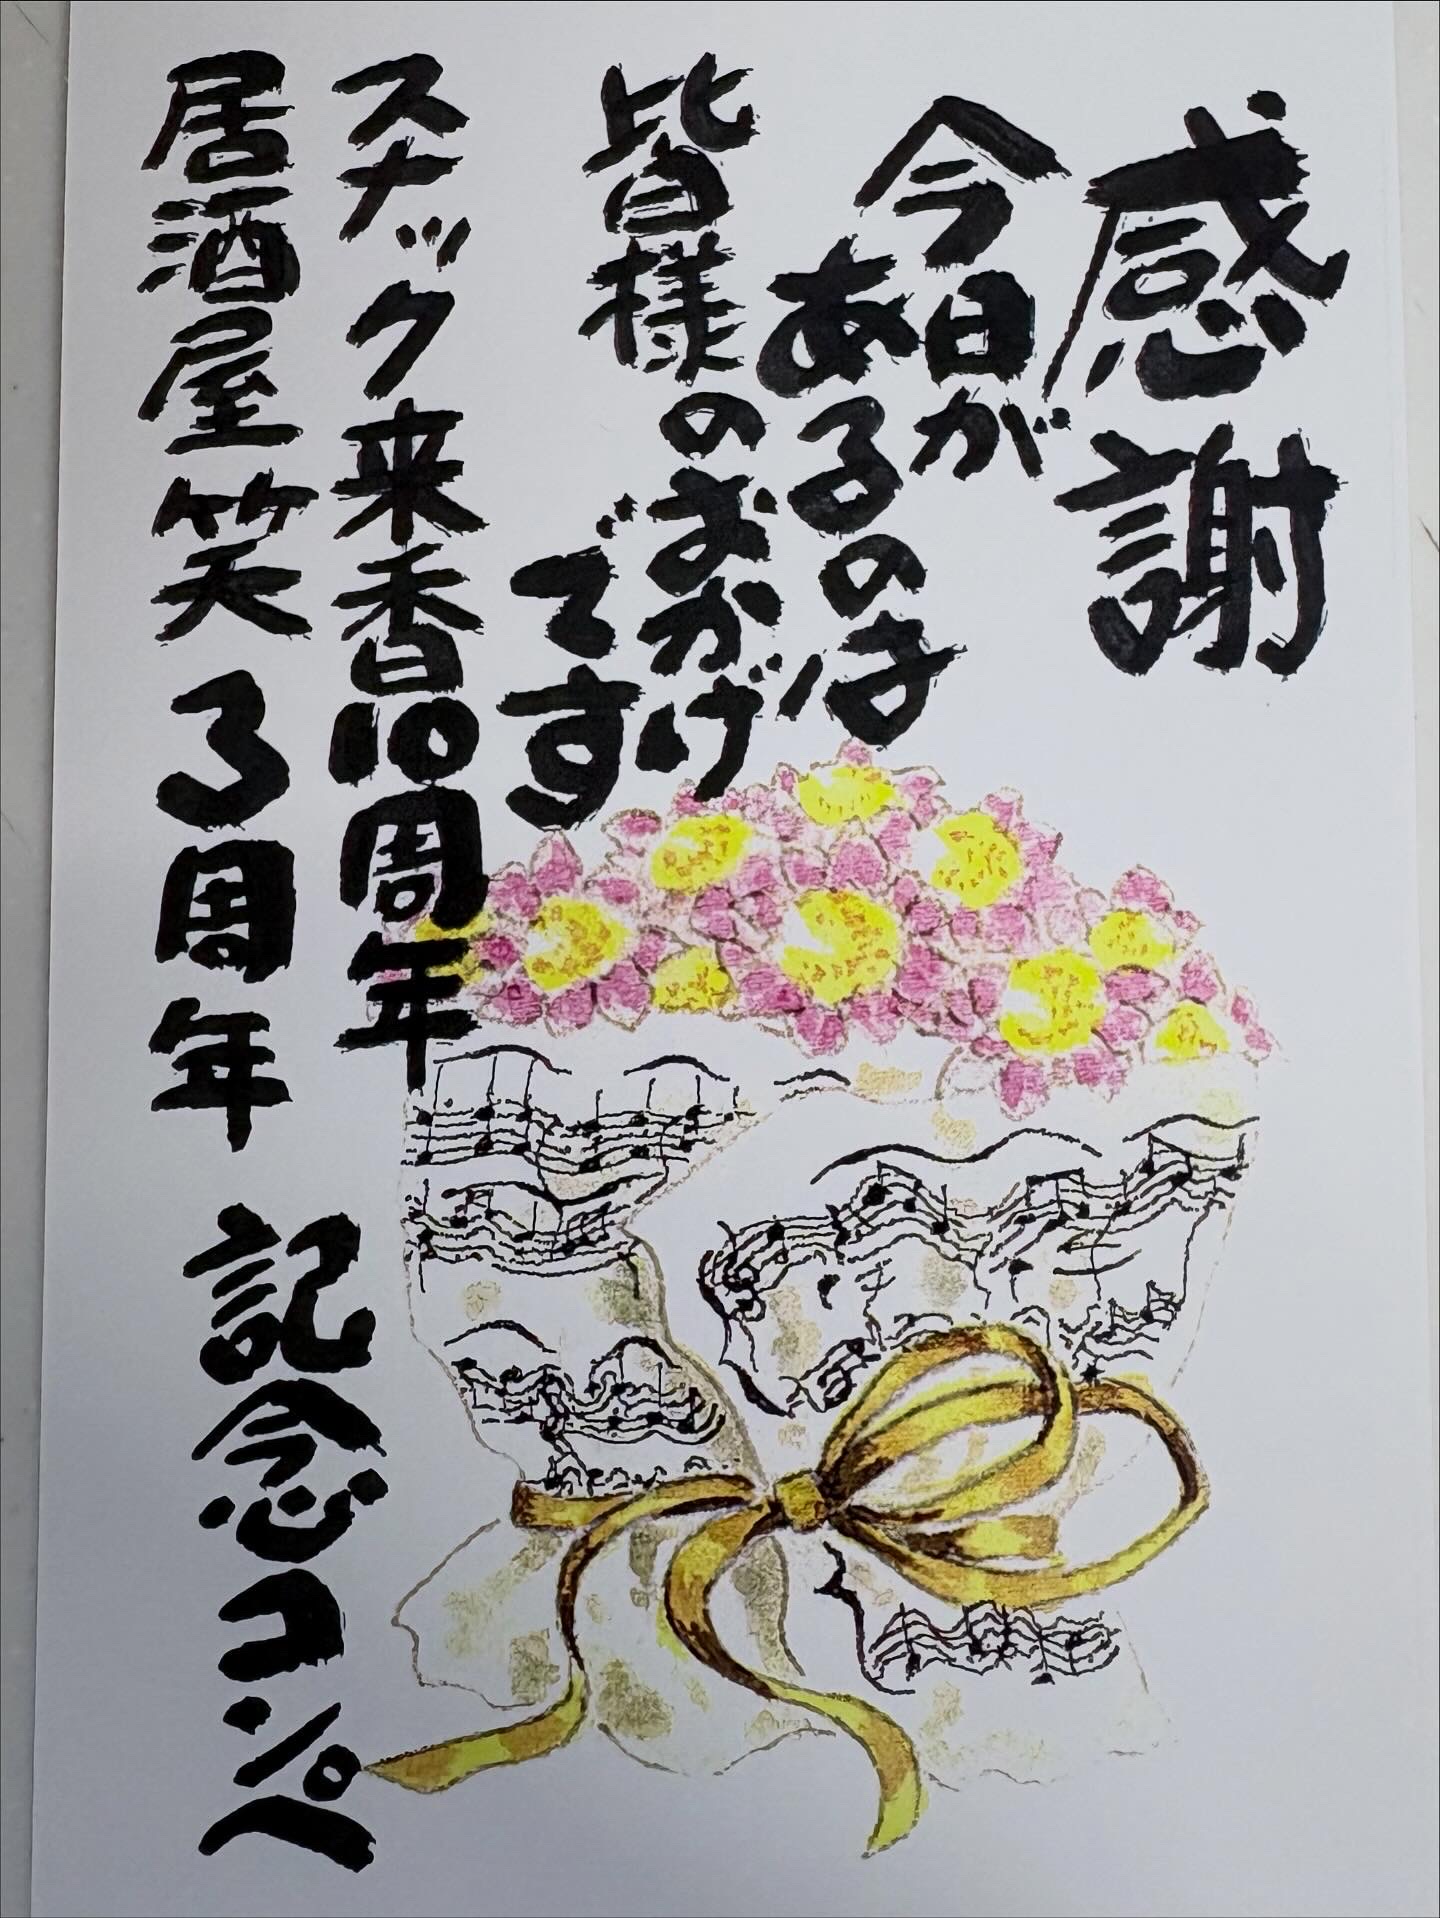 感謝
今日が
あるのは
皆様のおかげ
です
スナック来香10周年
居酒屋笑 3周年
記念コンペ